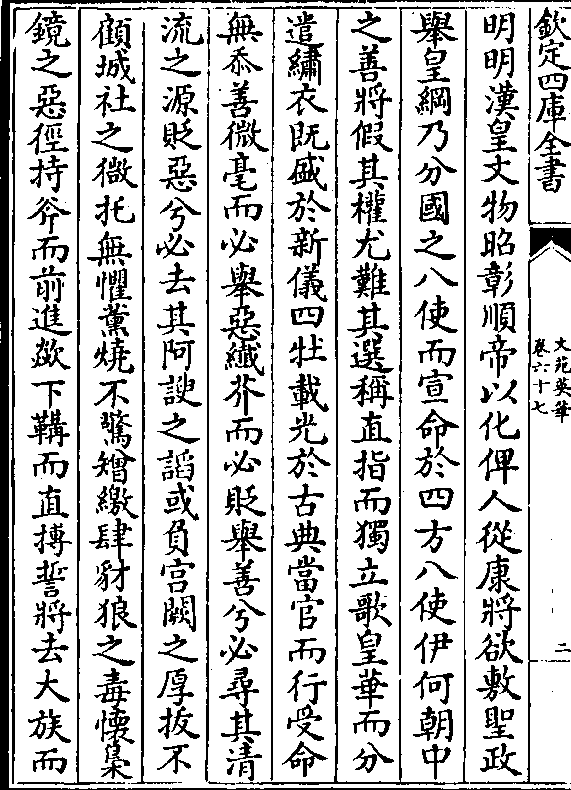 欽定四庫全書
文苑英華
卷六十七
二
明明漢皇文物昭彰順帝以化俾人從康將欲敷聖政
舉皇綱乃分國之八使而宣命於四方八使伊何朝中
之善將假其權尤難其選稱直指而獨立歌皇華而分
遣繡衣既盛於新儀四牡載光於古典當官而行受命
無忝善微毫而必舉惡纖芥而必貶舉善兮必尋其清
流之源貶惡兮必去其阿諛之謟或負宫闕之厚拔不
顧城社之微托無懼薰燒不驚矰繳肆豺狼之毒懷梟
鏡之惡徑持斧而前進欲下鞲而直摶誓將去大族而